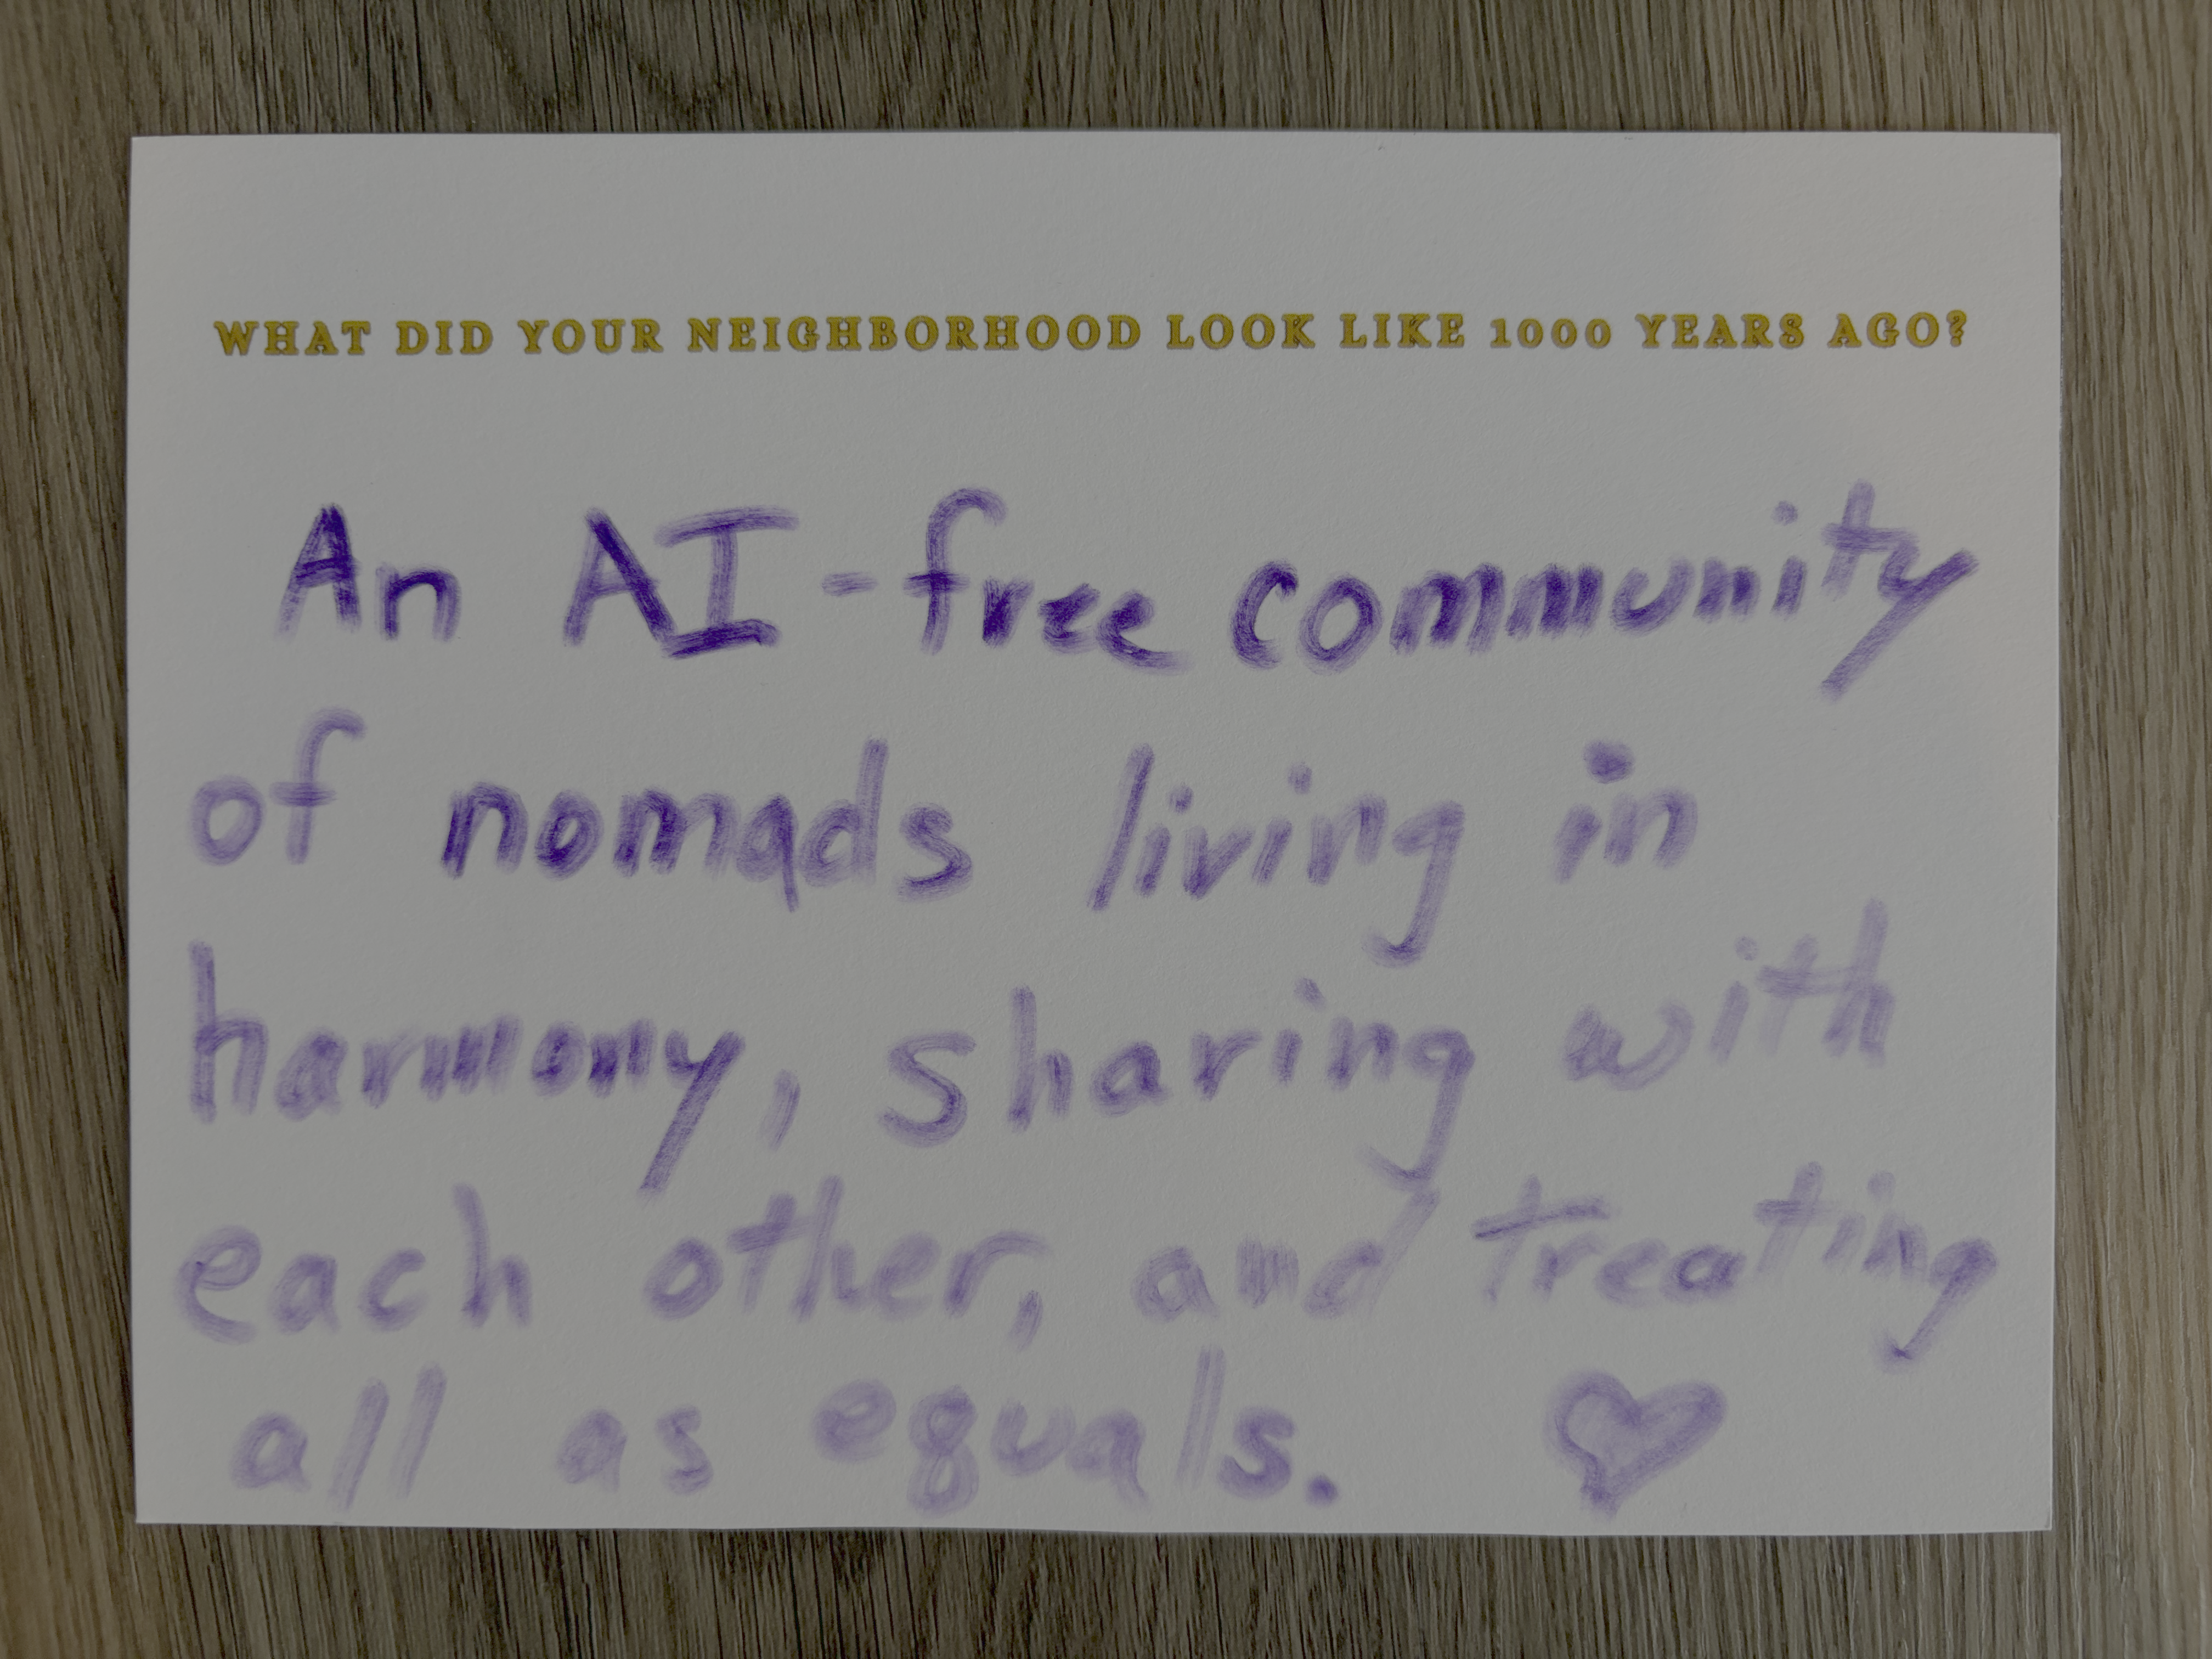 WHAT DID YOUR NEIGHBORHOOD LOOK LIKE 1000 YEARS AGO?
An AI-free community
of nomads living in
harmony, sharing with
each other, and treating
all as equals.